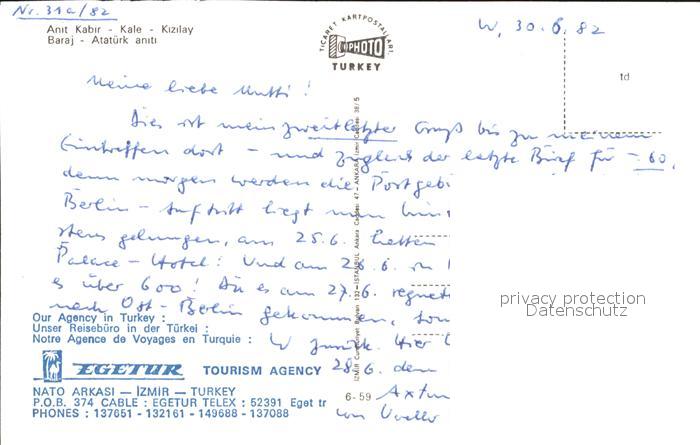 Nr. 31a/82
Anıt Kabır - Kale - Kızılay
Baraj - Atatürk anıti
TICARET KARTPOSTALLARI
PHOTO
TURKEY
W, 30.6.82
td
Meine liebe Mutti!
Dies ist mein zweitletzter Gruß bis zu meinem
Eintreffen dort - und zugleich der letzte Brief für -.60,
denn morgen werden die Postgebü
Berlin - Auftritt liegt nun hin
stens gelungen, am 25.6. hatten
Palace-Hotel! Und am 26.6. in
es über 600! Da es am 27.6. regnet
nach Ost-Berlin gekommen,
W zurück. Hier
28.6. dem
von
Our Agency in Turkey :
Unser Reisebüro in der Türkei :
Notre Agence de Voyages en Turquie :
EGETUR TOURISM AGENCY
NATO ARKASI — İZMİR — TURKEY
P.O.B. 374 CABLE : EGETUR TELEX : 52391 Eget tr
PHONES : 137651 - 132161 - 149688 - 137088
6-59
privacy protection
Datenschutz